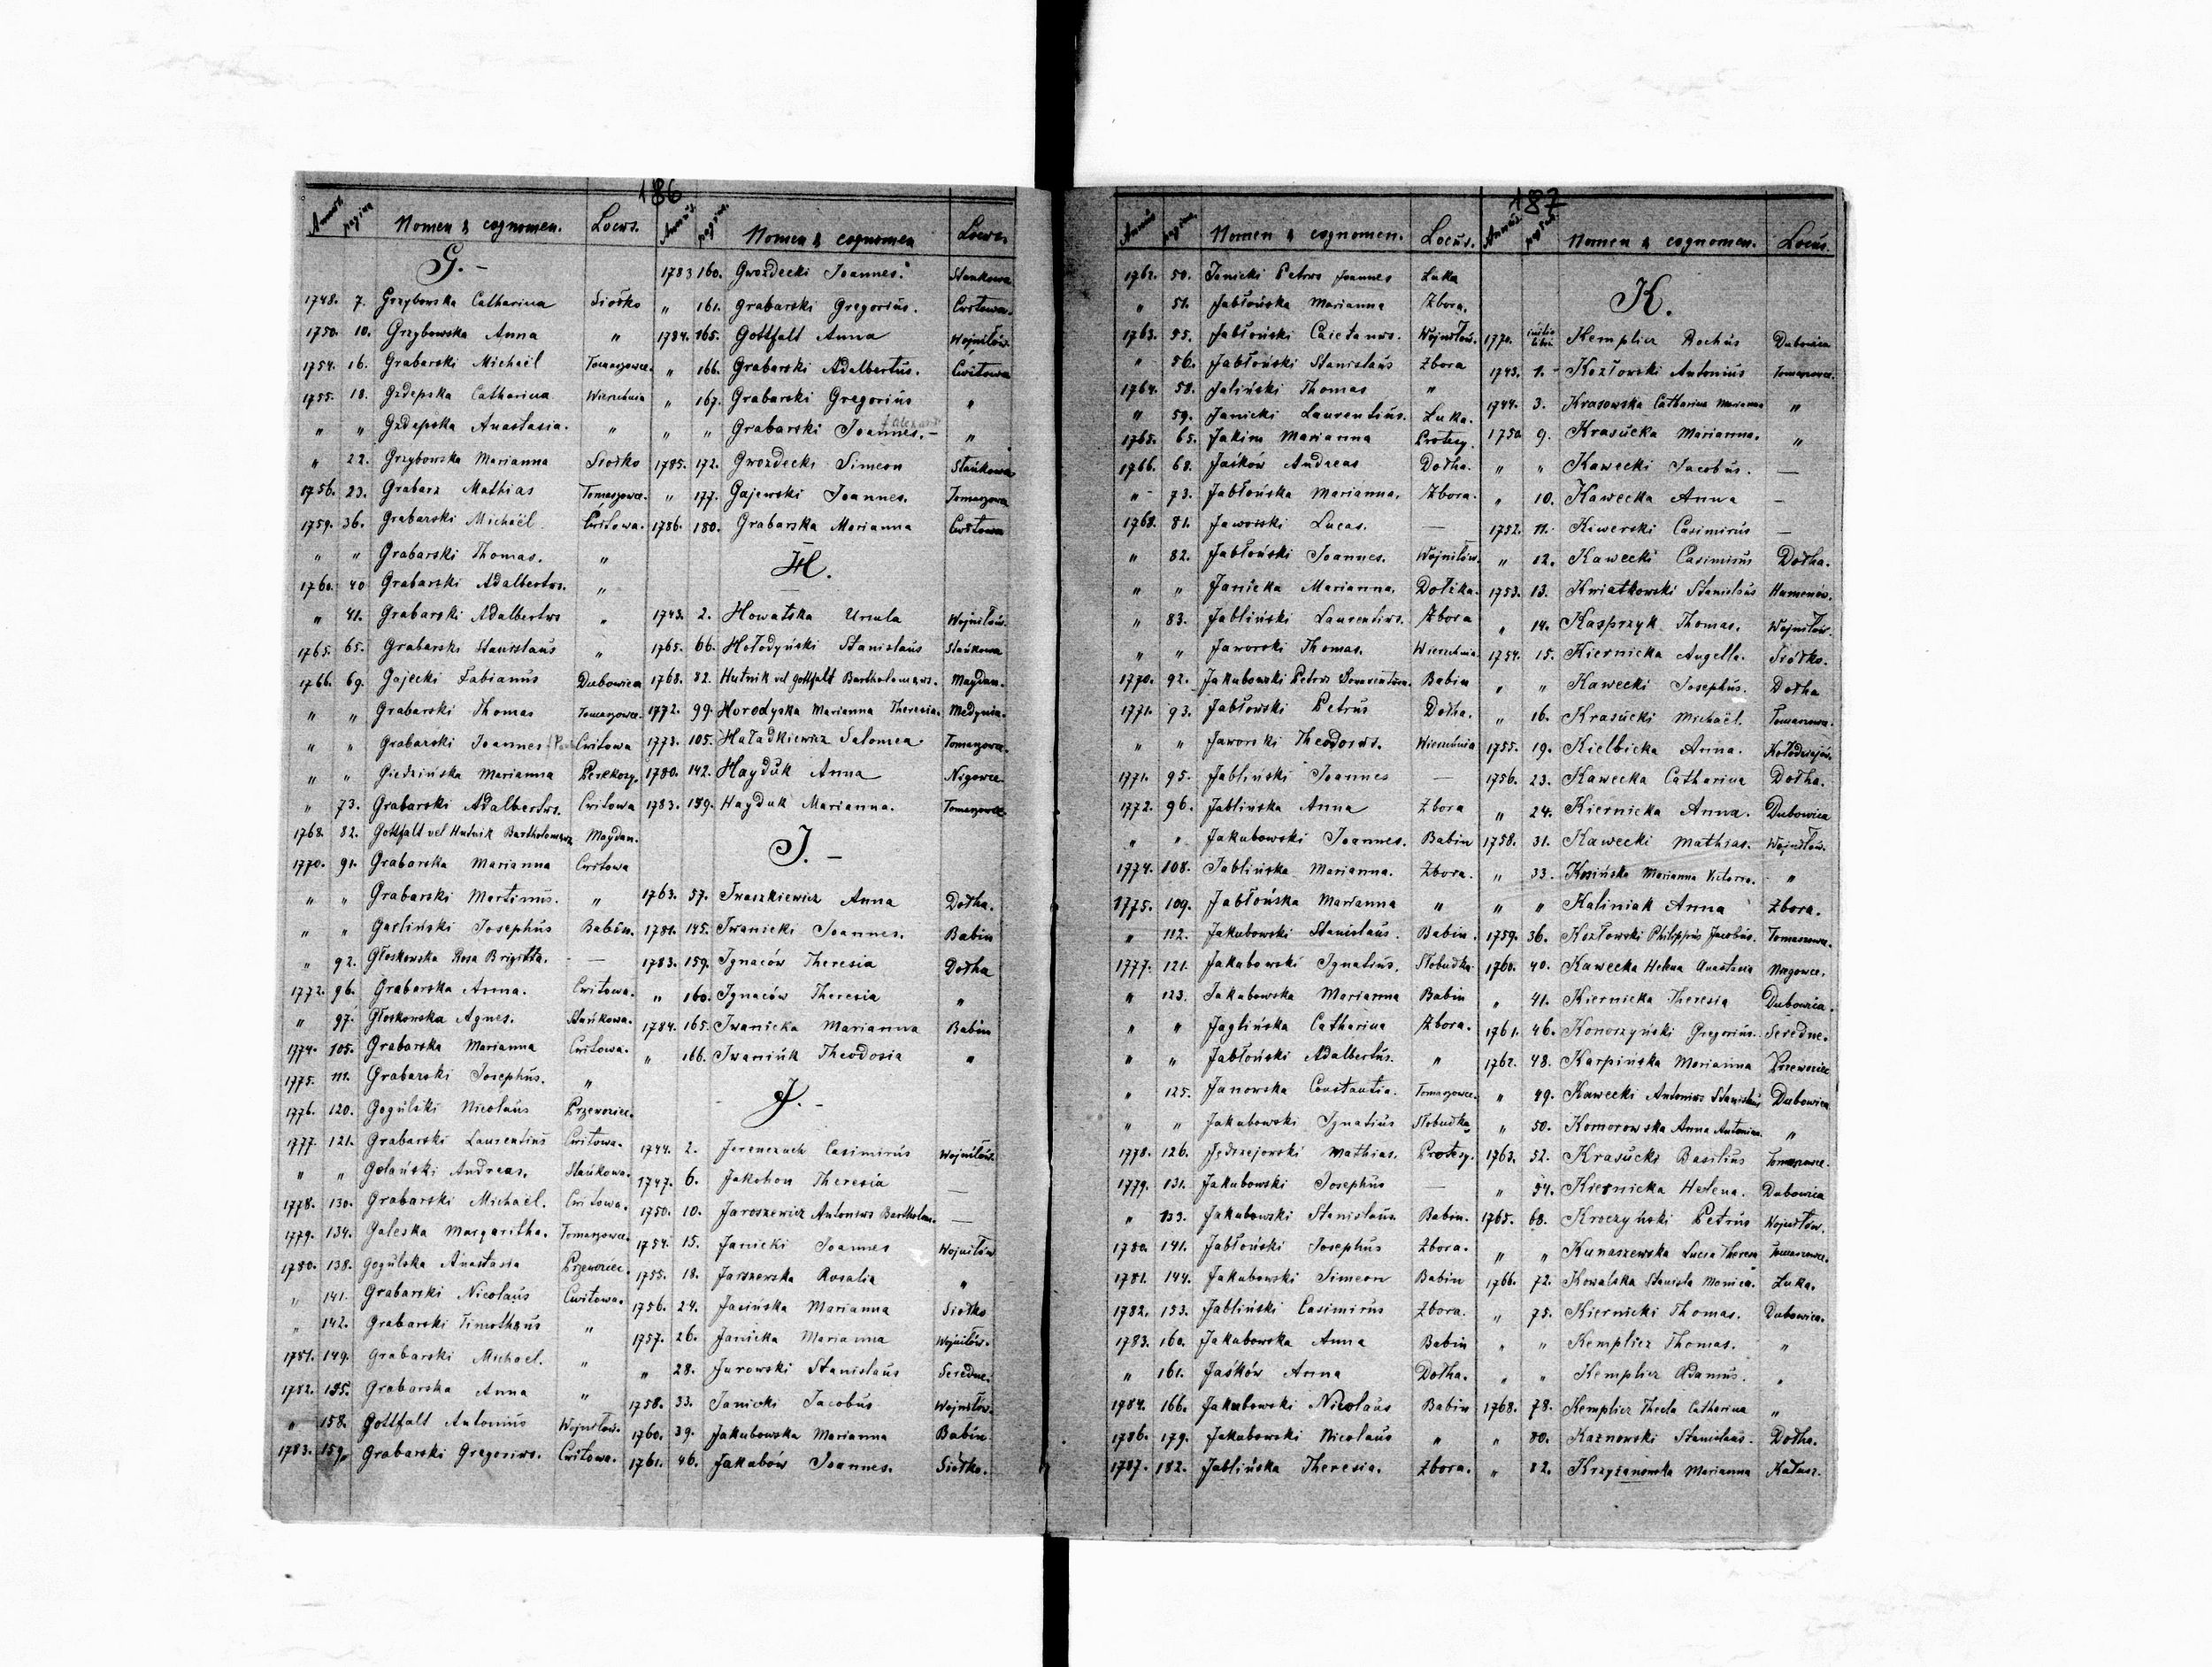 186
Annus. pagina Nomen & cognomen. Locus.
G. -
1748. 7. Grzybowska Catharina Siołko
1750. 10. Grzybowska Anna "
1754. 16. Grabarski Michaël Tomaszowce.
1755. 18. Gzdepska Catharina Wierzchnia
" " Gzdepska Anastasia. "
" 22. Grzybowska Marianna Siołko
1756. 23. Grabarz Mathias Tomaszowce.
1759. 36. Grabarski Michaël Cwitowa.
" " Grabarski Thomas. "
1760. 40 Grabarski Adalbertus. "
" 41. Grabarski Adalbertus "
1765. 65. Grabarski Stanislaus "
1766. 69. Gajecki Fabianus Dubowica
" " Grabarski Thomas Tomaszowce.
" " Grabarski Joannes Cwitowa
" " Giedzińska Marianna Perekosy.
" 73. Grabarski Adalbertus. Cwitowa
1768. 82. Gottfalt vel Hutnik Bartholomeus Maydan.
1770. 91. Grabarska Marianna Cwitowa
" " Grabarski Martinus. "
" " Garliński Josephus Babin.
" 92. Głoskowska Rosa Brigitta. —
1772. 96. Grabarska Anna. Cwitowa.
" 97. Głoskowska Agnes. Stańkowa.
1774. 105. Grabarska Marianna Cwitowa.
1775. 111. Grabarski Josephus. "
1776. 120. Gogulski Nicolaus Przewoziec.
1777. 121. Grabarski Laurentius Cwitowa.
" " Golański Andreas. Stańkowa.
1778. 130. Grabarski Michaël. Cwitowa.
1779. 134. Galeska Margaritha. Tomaszowce.
1780. 138. Gogulska Anastasia Przewoziec.
" 141. Grabarski Nicolaus Cwitowa.
" 142. Grabarski Timotheus "
1781. 149. Grabarski Michael. "
1782. 155. Grabarska Anna "
" 158. Gottfalt Antonius Wojniłów.
1783. 159. Grabarski Gregorius. Cwitowa.
Annus. pagina. Nomen & cognomen Locus
1783 160. Gwozdecki Joannes. Stankowa
" 161. Grabarski Gregorius. Cwitowa.
1784. 165. Gottfalt Anna Wojniłów.
" 166. Grabarski Adalbertus. Cwitowa
" 167. Grabarski Gregorius "
" " Grabarski Joannes. - "
1785. 172. Gwozdecki Simeon Stańkowa
" 177. Gajewski Joannes. Tomaszowce
1786. 180. Grabarska Marianna Cwitowa
H.
1743. 2. Howatska Ursula Wojniłów.
1765. 66. Hołodyński Stanislaus Stańkowa
1768. 82. Hutnik vel Gottfalt Bartholomaeus. Maydan.
1772. 99. Horodyska Marianna Theresia. Medynia.
1773. 105. Haładkiewicz Salomea Tomaszowce.
1780. 142. Hayduk Anna Nigowce
1783. 159. Hayduk Marianna. Tomaszowce
I. -
1763. 57. Iwaszkiewicz Anna Dołha.
1781. 145. Iwanicki Joannes. Babin
1783. 159. Ignaców Theresia Dołha
" 160. Ignaców Theresia "
1784. 165. Iwanicka Marianna Babin
" 166. Iwaniuk Theodosia "
J. -
1744. 2. Jerenczuch Casimirus Wojniłów.
1747. 6. Jakohon Theresia —
1750. 10. Jaroszewicz Antonius Bartholom. —
1754. 15. Janicki Joannes Wojniłów
1755. 18. Jarszewska Rosalia "
1756. 24. Jasińska Marianna Siołko
1757. 26. Janicka Marianna Wojniłów.
" 28. Jurowski Stanislaus Seredne.
1758. 33. Janicki Jacobus Wojniłów.
1760. 39. Jakubowska Marianna Babin.
1761. 46. Jakubów Joannes. Siołko.
187
Annus pagina. Nomen & cognomen. Locus.
1762. 50. Janicki Petrus Joannes Łuka
" 51. Jabłońska Marianna Zbora.
1763. 55. Jabłoński Caietanus. Wojniłów.
" 56. Jabłoński Stanislaus Zbora
1764. 58. Jaliński Thomas "
" 59. Janicki Laurentius. Łuka.
1765. 65. Jakim Marianna Protesy.
1766. 68. Jaśków Andreas Dołha.
" - 73. Jabłońska Marianna. Zbora.
1768. 81. Jaworski Lucas. —
" 82. Jabłoński Joannes. Wojniłów.
" " Janicka Marianna. Dołżka.
" 83. Jabliński Laurentius. Zbora
" " Jaworski Thomas. Wierzchnia.
1770. 92. Jakubowski Petrus Bonaventura. Babin
1771. 93. Jabłowski Petrus Dołha.
" " Jaworski Theodorus. Wierzchnia
1771. 95. Jabliński Joannes —
1772. 96. Jablińska Anna Zbora
" " Jakubowski Joannes. Babin
1774. 108. Jablińska Marianna. Zbora.
1775. 109. Jabłońska Marianna "
" 112. Jakubowski Stanislaus. Babin.
1777. 121. Jakubowski Ignatius. Słobudka
" 123. Jakubowska Marianna Babin
" " Jaglińska Catharina Zbora.
" " Jabłoński Adalbertus. "
" 125. Janowska Constantia. Tomaszowce.
" " Jakubowski Ignatius Słobudka
1778. 126. Jedrzejowski Mathias. Protesy.
1779. 131. Jakubowski Josephus —
" 133. Jakubowski Stanislaus. Babin.
1780. 141. Jabłoński Josephus Zbora.
1781. 144. Jakubowski Simeon Babin
1782. 153. Jabliński Casimirus Zbora.
1783. 160. Jakubowska Anna Babin
" 161. Jaśków Anna Dołha.
1784. 166. Jakubowski Nicolaus Babin
1786. 179. Jakubowski Nicolaus "
1787. 182. Jablińska Theresia. Zbora.
Annus. pagina Nomen & cognomen. Locus.
K.
1770. initio libri Kemplicz Rochus Dubowica
1743. 1. - Kozłowski Antonius Tomaszowce.
1744. 3. Krasowska Catharina Marianna "
1750 9. Krasucka Marianna. "
" " Kawecki Jacobus. —
" 10. Kawecka Anna —
1752. 11. Kiwerski Casimirus —
" 12. Kawecki Casimirus Dołha.
1753. 13. Kwiatkowski Stanislaus Humenów.
" 14. Kasprzyk Thomas. Wojniłów.
1754. 15. Kiernicka Angella. Siółko.
" " Kawecki Josephus. Dołha
" 16. Krasucki Michaël. Tomaszowce.
1755. 19. Kielbicka Anna. Kołodziejów.
1756. 23. Kawecka Catharina Dołha.
" 24. Kiernicka Anna. Dubowica
1758. 31. Kawecki Mathias. Wojniłów.
" 33. Kosińska Marianna Victoria. "
" " Kaliniak Anna Zbora.
1759. 36. Kozłowski Philippus Jacobus. Tomaszowce.
1760. 40. Kawecka Helena Anastasia Niegowce.
" 41. Kiernicka Theresia Dubowica.
1761. 46. Konorzyński Gregorius. Seredne.
1762. 48. Karpińska Marianna Przewoziec
" 49. Kawecki Antonius Stanislaus Dubowica
" 50. Komorowska Anna Antonina. "
1763. 52. Krasucki Basilius Tomaszowce.
" 54. Kiernicka Helena. Dubowica
1765. 68. Kroczyński Petrus Wojniłów.
" " Kunaszewska Lucia Theresia Tomaszowce.
1766. 72. Kowalska Stanisla Monica. Łuka.
" 75. Kiernicki Thomas. Dubowica.
" " Kemplicz Thomas. "
" " Kemplicz Adamus. "
1768. 78. Kemplicz Thecla Catharina "
" 80. Kaznowski Stanislaus. Dołha.
" 82. Krzyżanowska Marianna Kałusz.